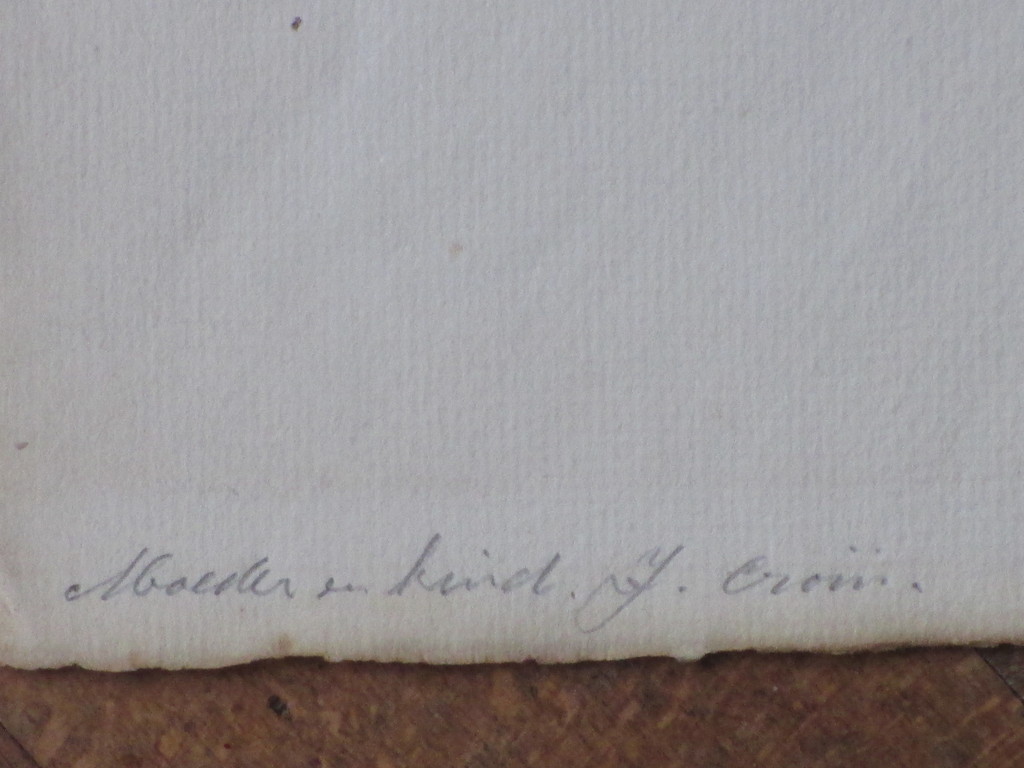 Moeder en kind. J. Croïn.